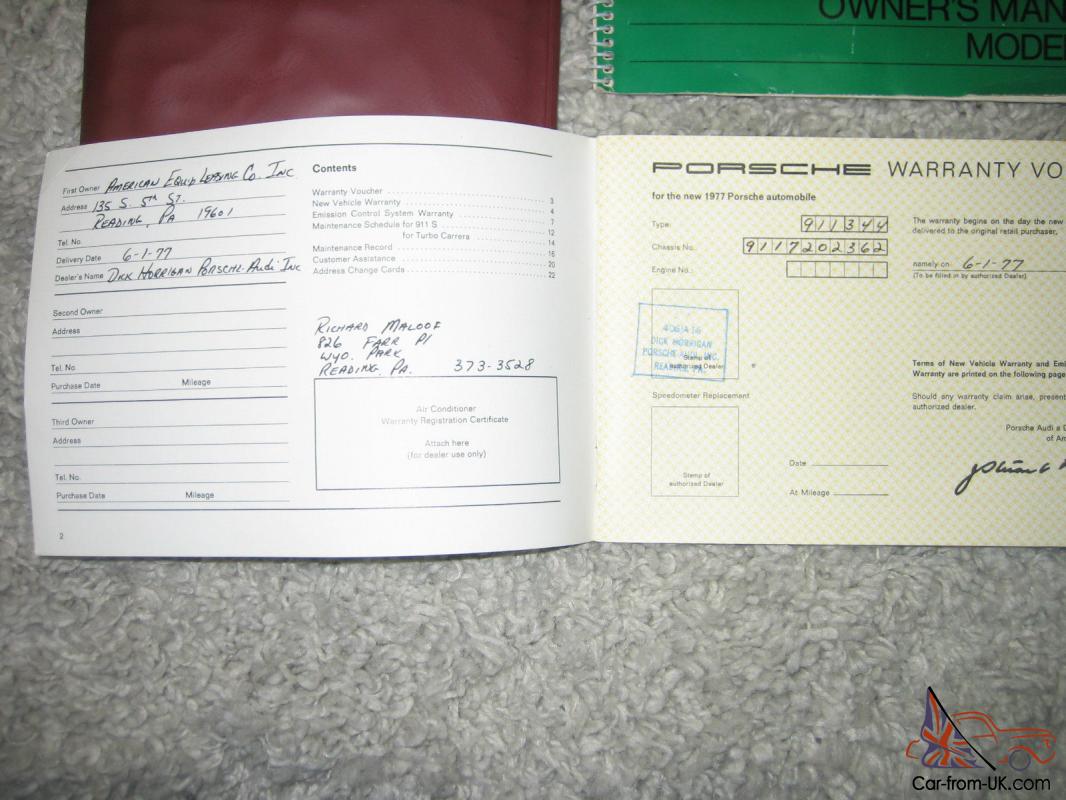 OWNER'S MAN
MODE
First Owner AMERICAN EQUIP LEASING CO. INC
Address 135 S. 5TH ST.
READING, PA 19601
Tel. No.
Delivery Date 6-1-77
Dealer's Name DICK HORRIGAN PORSCHE-AUDI INC
Second Owner
Address
Tel. No.
Purchase Date Mileage
Third Owner
Address
Tel. No.
Purchase Date Mileage
2
Contents
Warranty Voucher 3
New Vehicle Warranty 4
Emission Control System Warranty 7
Maintenance Schedule for 911 S 12
for Turbo Carrera 14
Maintenance Record 16
Customer Assistance 20
Address Change Cards 22
RICHARD MALOOF
826 FARR Pl
WYO. PARK
READING, PA. 373-3528
Air Conditioner
Warranty Registration Certificate
Attach here
(for dealer use only)
PORSCHE WARRANTY VO
for the new 1977 Porsche automobile
Type: 911344
Chassis No.: 9117202362
Engine No.:
DICK HORRIGAN
PORSCHE AUDI, INC.
READING, PA.
Stamp of
authorized Dealer
Speedometer Replacement
Stamp of
authorized Dealer
The warranty begins on the day the new
delivered to the original retail purchaser,
namely on 6-1-77
(To be filled in by authorized Dealer)
Terms of New Vehicle Warranty and Emi
Warranty are printed on the following page
Should any warranty claim arise, present
authorized dealer.
Porsche Audi a D
of Am
Date
At Mileage
Car-from-UK.com